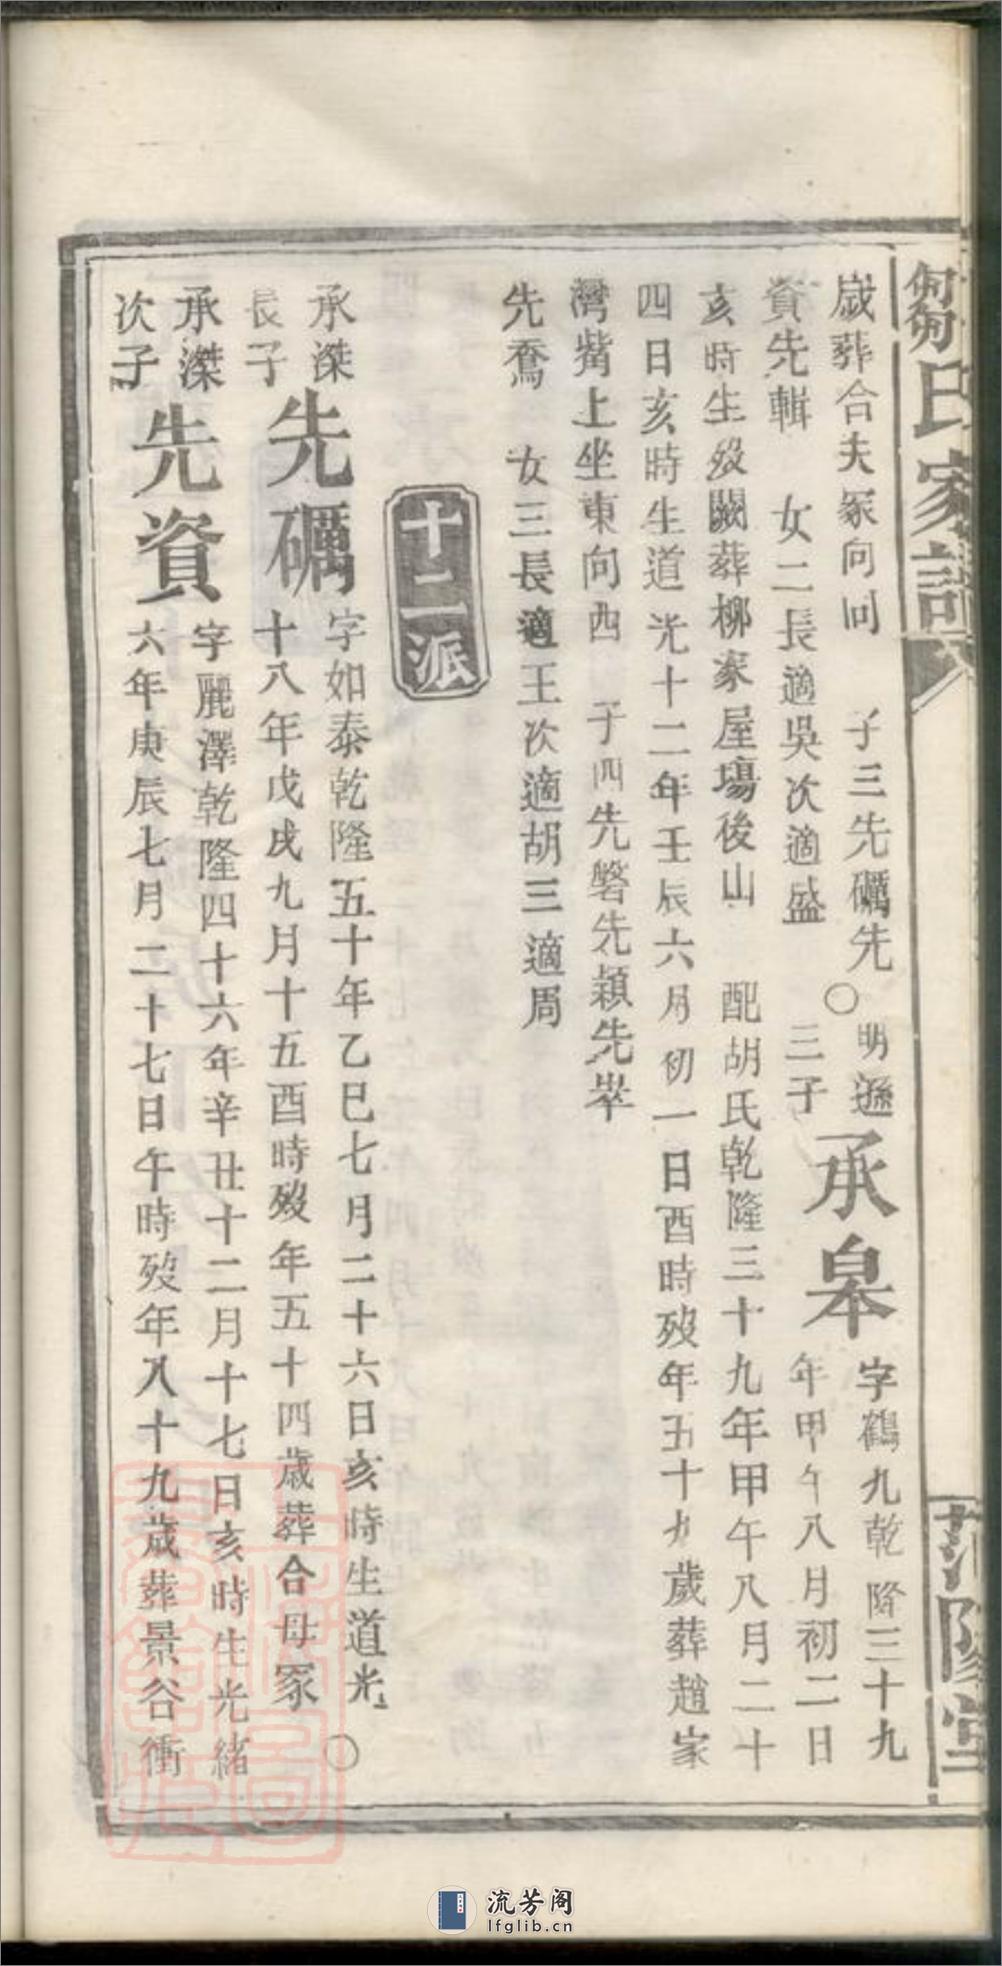 芻氏家譜
歲葬合夫冢向同　子三先礪先○明遜
資先輯　女二長適吳次適盛　三子
承皋
字鶴九乾隆三十九
年甲午八月初二日
亥時生歿闕葬柳家屋塲後山　配胡氏乾隆三十九年甲午八月二十
四日亥時生道光十二年壬辰六月初一日酉時歿年五十九歲葬趙家
灣觜上坐東向西　子四先磐先穎先犖
先喬　女三長適王次適胡三適周
十二派
承滐
長子
先礪
字如泰乾隆五十年乙巳七月二十六日亥時生道光
十八年戊戌九月十五酉時歿年五十四歲葬合母冢○
承滐
次子
先資
字麗澤乾隆四十六年辛丑十二月十七日亥時生光緒
六年庚辰七月二十七日午時歿年八十九歲葬景谷衝
流芳阁
lfglib.cn